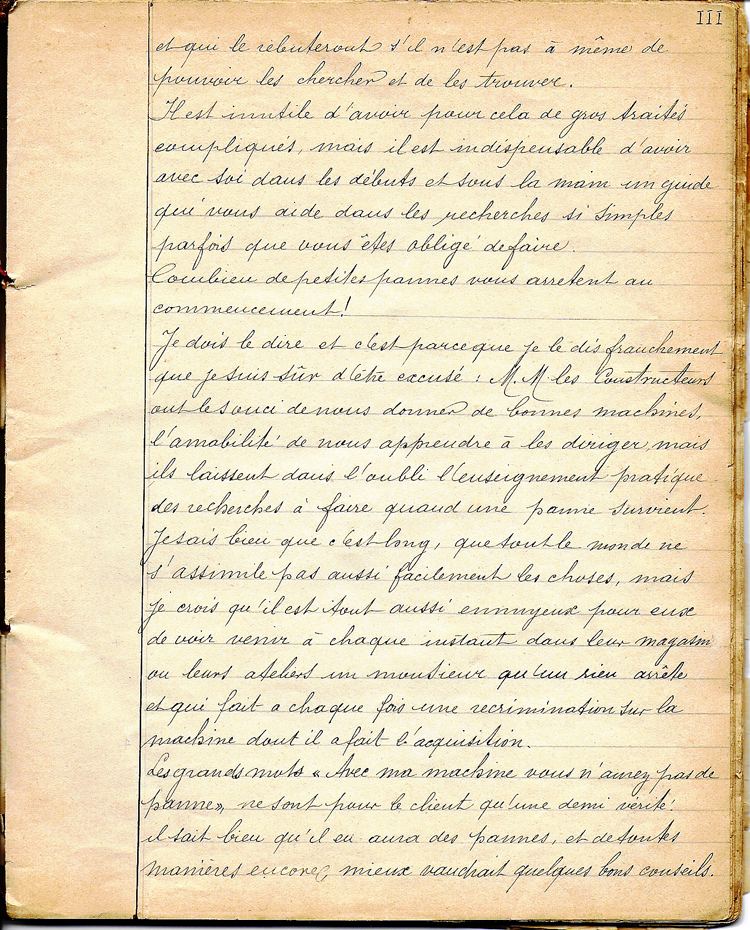 III
et qui le rebuteront s'il n'est pas à même de
pouvoir les chercher et de les trouver.
Il est inutile d'avoir pour cela de gros traités
compliqués, mais il est indispensable d'avoir
avec soi dans les débuts et sous la main un guide
qui vous aide dans les recherches si simples
parfois que vous êtes obligé de faire.
Combien de petites pannes vous arretent au
commencement!
Je dois le dire et c'est parce que je le dis franchement
que je suis sûr d'être excusé : M.M les Constructeurs
ont le souci de nous donner de bonnes machines,
l'amabilité de nous apprendre à les diriger, mais
ils laissent dans l'oubli l'enseignement pratique
des recherches à faire quand une panne survient.
Je sais bien que c'est long, que tout le monde ne
s'assimile pas aussi facilement les choses, mais
je crois qu'il est tout aussi ennuyeux pour eux
de voir venir à chaque instant dans leur magasin
ou leurs ateliers un monsieur qu'un rien arrête
et qui fait a chaque fois une recrimination sur la
machine dont il a fait l'acquisition.
Les grands mots « Avec ma machine vous n'aurez pas de
panne », ne sont pour le client qu'une demi vérité:
il sait bien qu'il en aura des pannes, et de toutes
manières encore, mieux vaudrait quelques bons conseils.